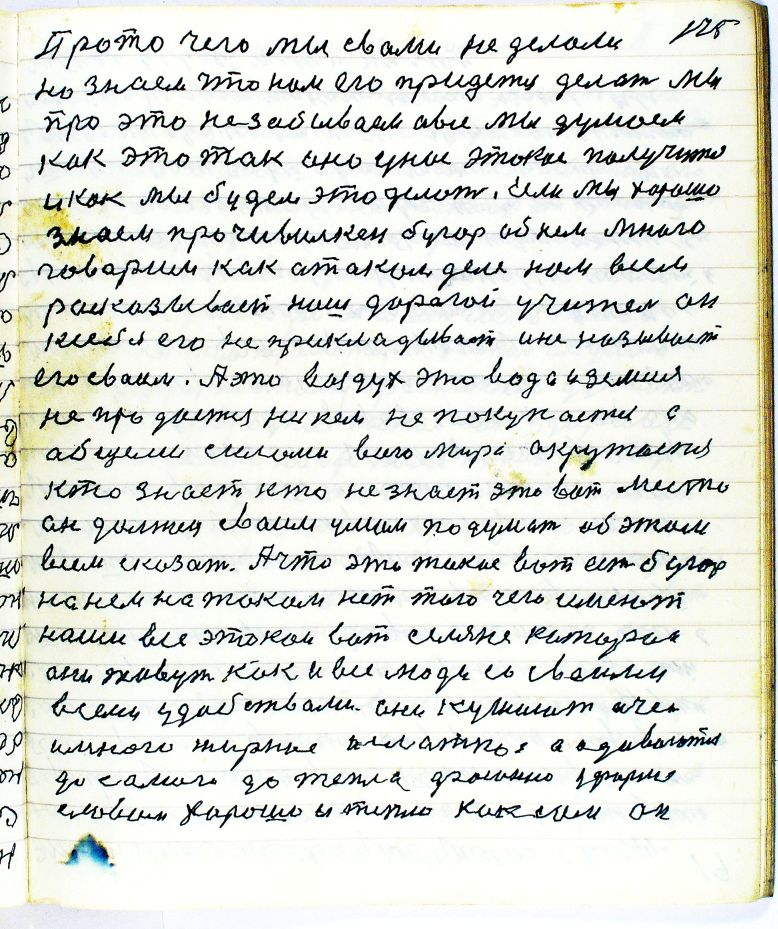 175
Прото чего мы свами не делали
но знаем что нам его придетця делат мы
про это незабываем авсе мы думаем
как это так оно унас этокае получитця
икак мы будем этоделат. Если мы хорошо
знаем прочивилкен бугор обнем много
говарим как атаком деле нам всем
расказывает наш дорагой учител он
ксебя его не прикладывает ине называет
егосваим. Аэто воздух это вода иземля
не продаетця никем не покупаетця а
абщеми силами всего мира акружаетця
кто знает кто незнает это вот место
он должен сваим умом подумат обэтом
всем сказат. Ачто это такое вот ест бугор
нанем на таком нет того чего имеют
наши все этокаи вот селяне каторае
они живут как и все люди со сваими
всеми удобствами. они кушают очен
имного жирнае исладкое а адеваютця
до самого до тепла
словам хорошо и тепло как сам он